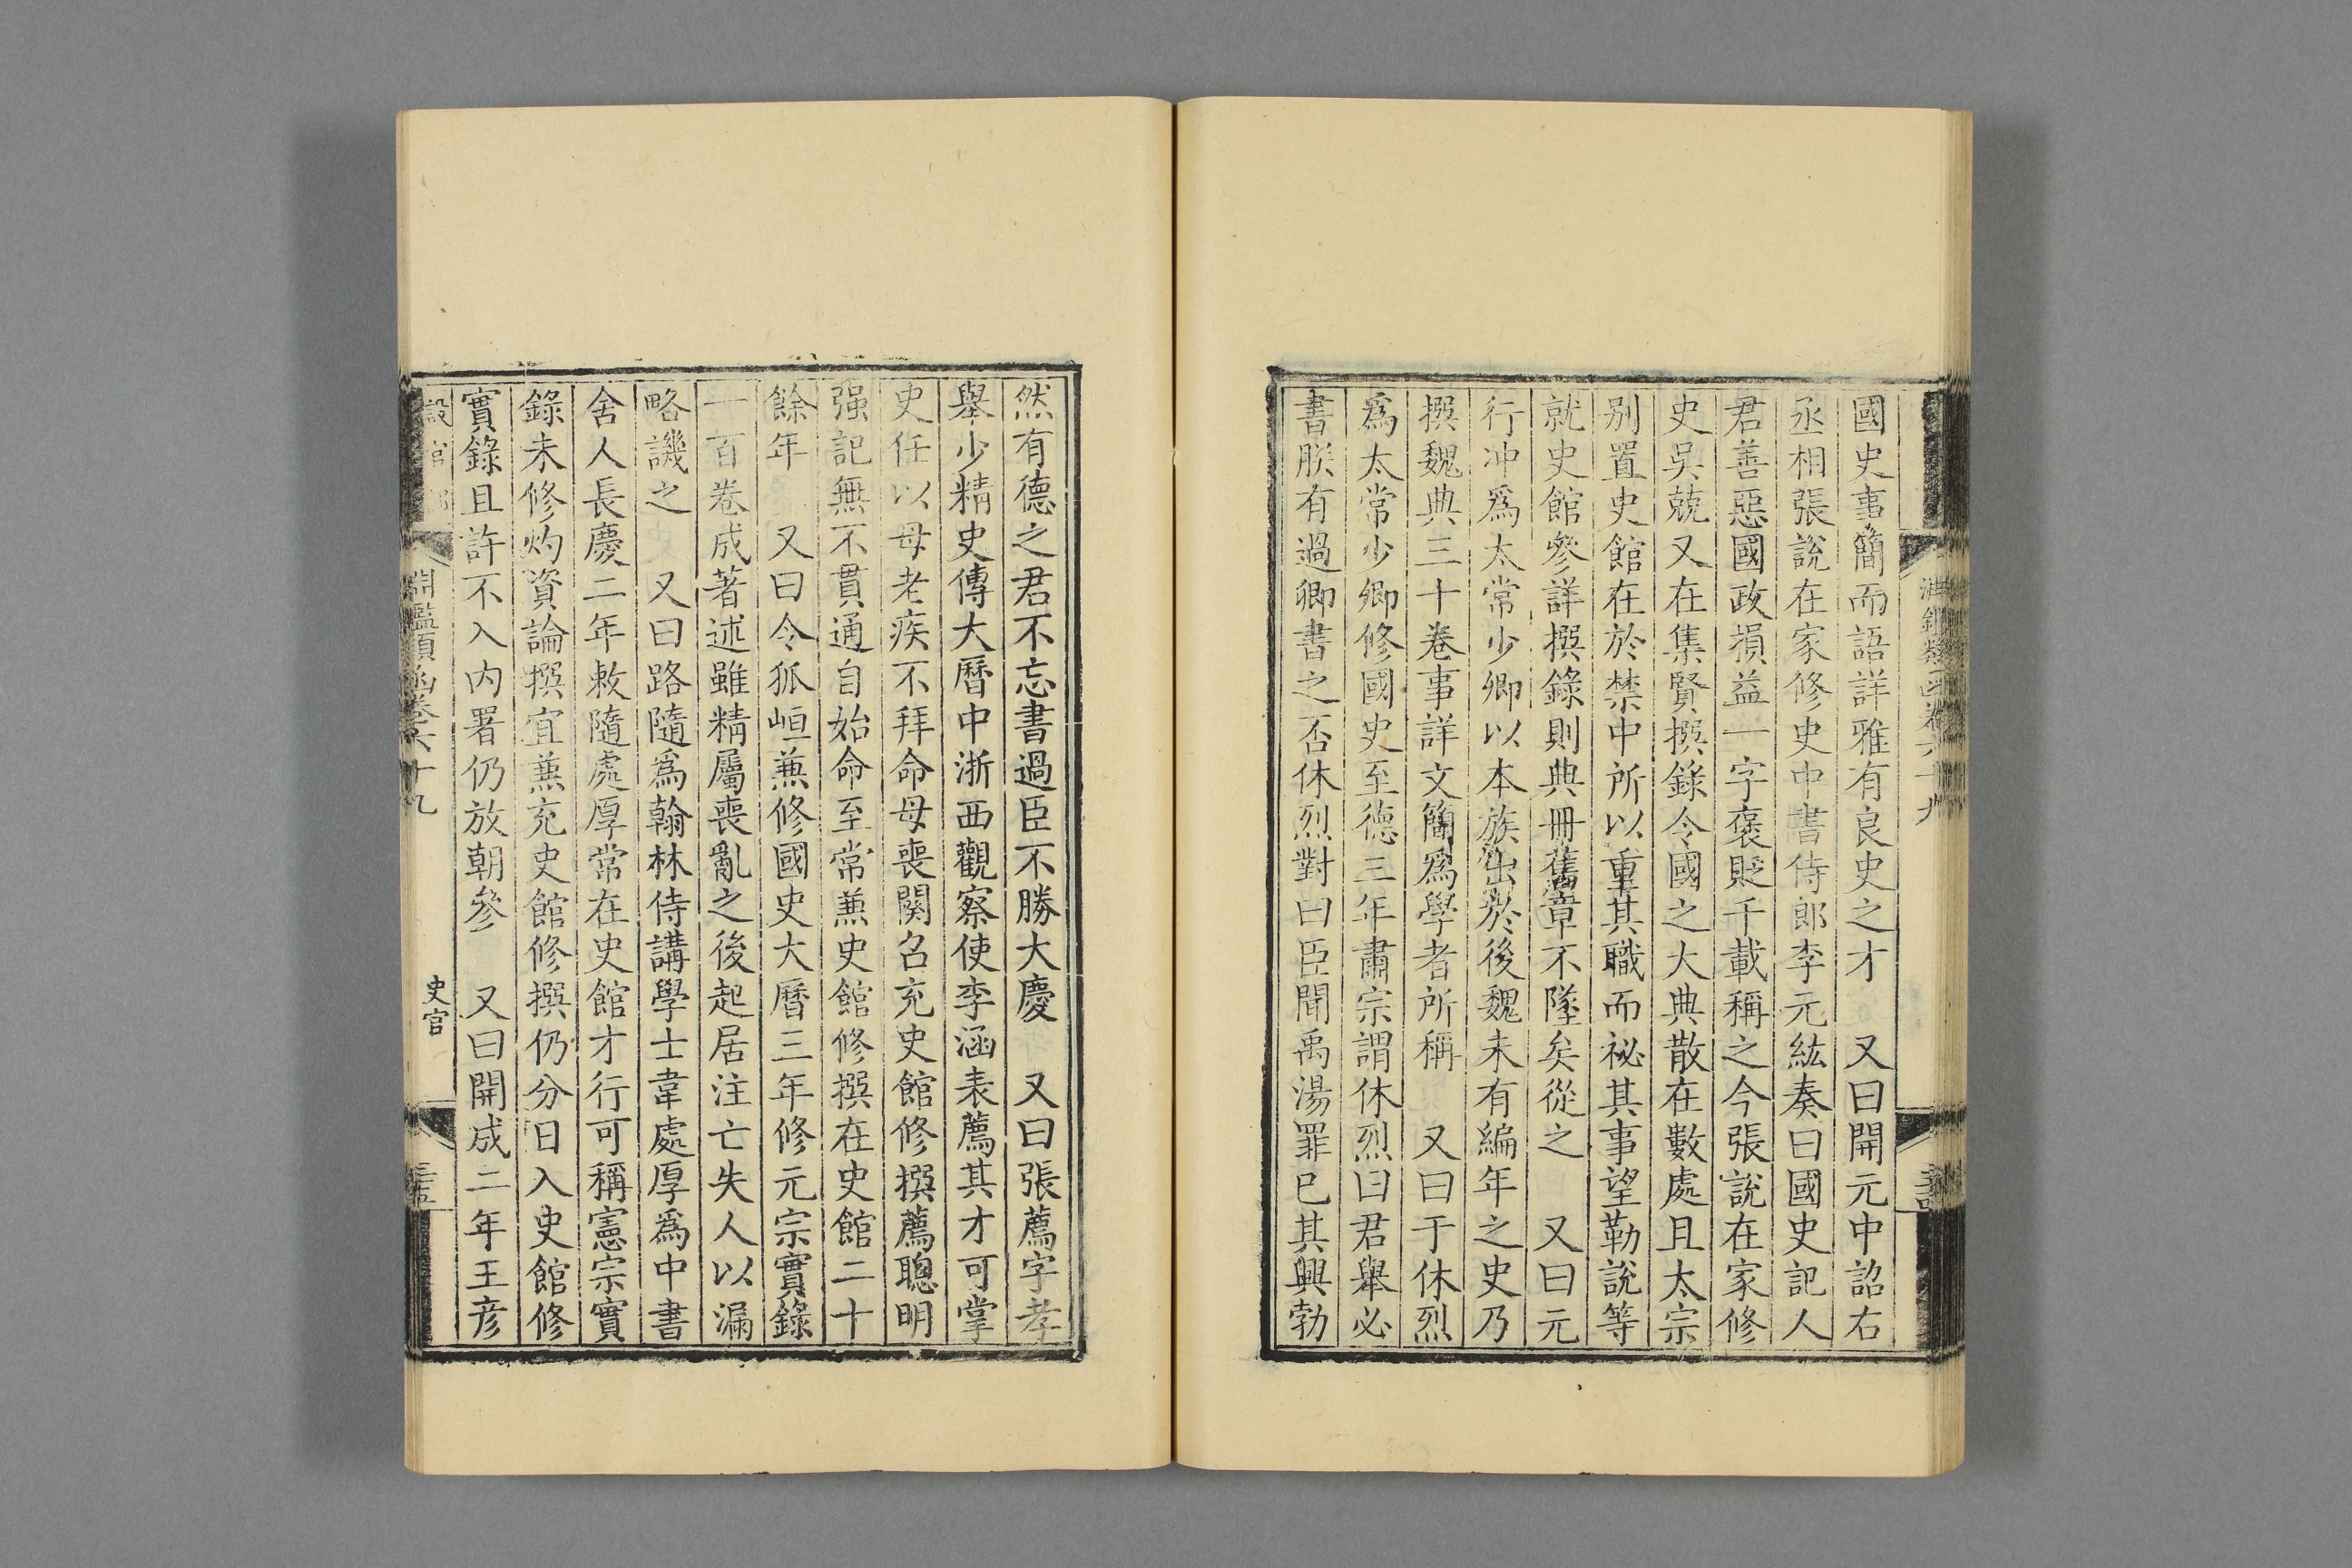 國史事簡而語詳雅有良史之才　又曰開元中詔右
丞相張說在家修史中書侍郎李元紘奏曰國史記人
君善惡國政損益一字褒貶千載稱之今張說在家修
史吳兢又在集賢撰錄令國之大典散在數處且太宗
別置史館在於禁中所以重其職而祕其事望勒說等
就史館參詳撰錄則典冊舊章不墜矣從之　又曰元
行沖爲太常少卿以本族出於後魏未有編年之史乃
撰魏典三十卷事詳文簡爲學者所稱　又曰于休烈
爲太常少卿修國史至德三年肅宗謂休烈曰君舉必
書朕有過卿書之否休烈對曰臣聞禹湯罪已其興勃
然有德之君不忘書過臣不勝大慶　又曰張薦字孝
舉少精史傳大曆中浙西觀察使李涵表薦其才可掌
史任以母老疾不拜命母喪闋名充史館修撰薦聰明
强記無不貫通自始命至常兼史館修撰在史館二十
餘年　又曰令狐峘兼修國史大曆三年修元宗實錄
一百卷成著述雖精屬喪亂之後起居注亡失人以漏
略譏之　又曰路隨爲翰林侍講學士韋處厚爲中書
舍人長慶二年敕隨處厚常在史館才行可稱憲宗實
錄未修灼資論撰宜兼充史館修撰仍分日入史館修
實錄且許不入內署仍放朝參　又曰開成二年王彦
淵鑑類函卷六十九
史官